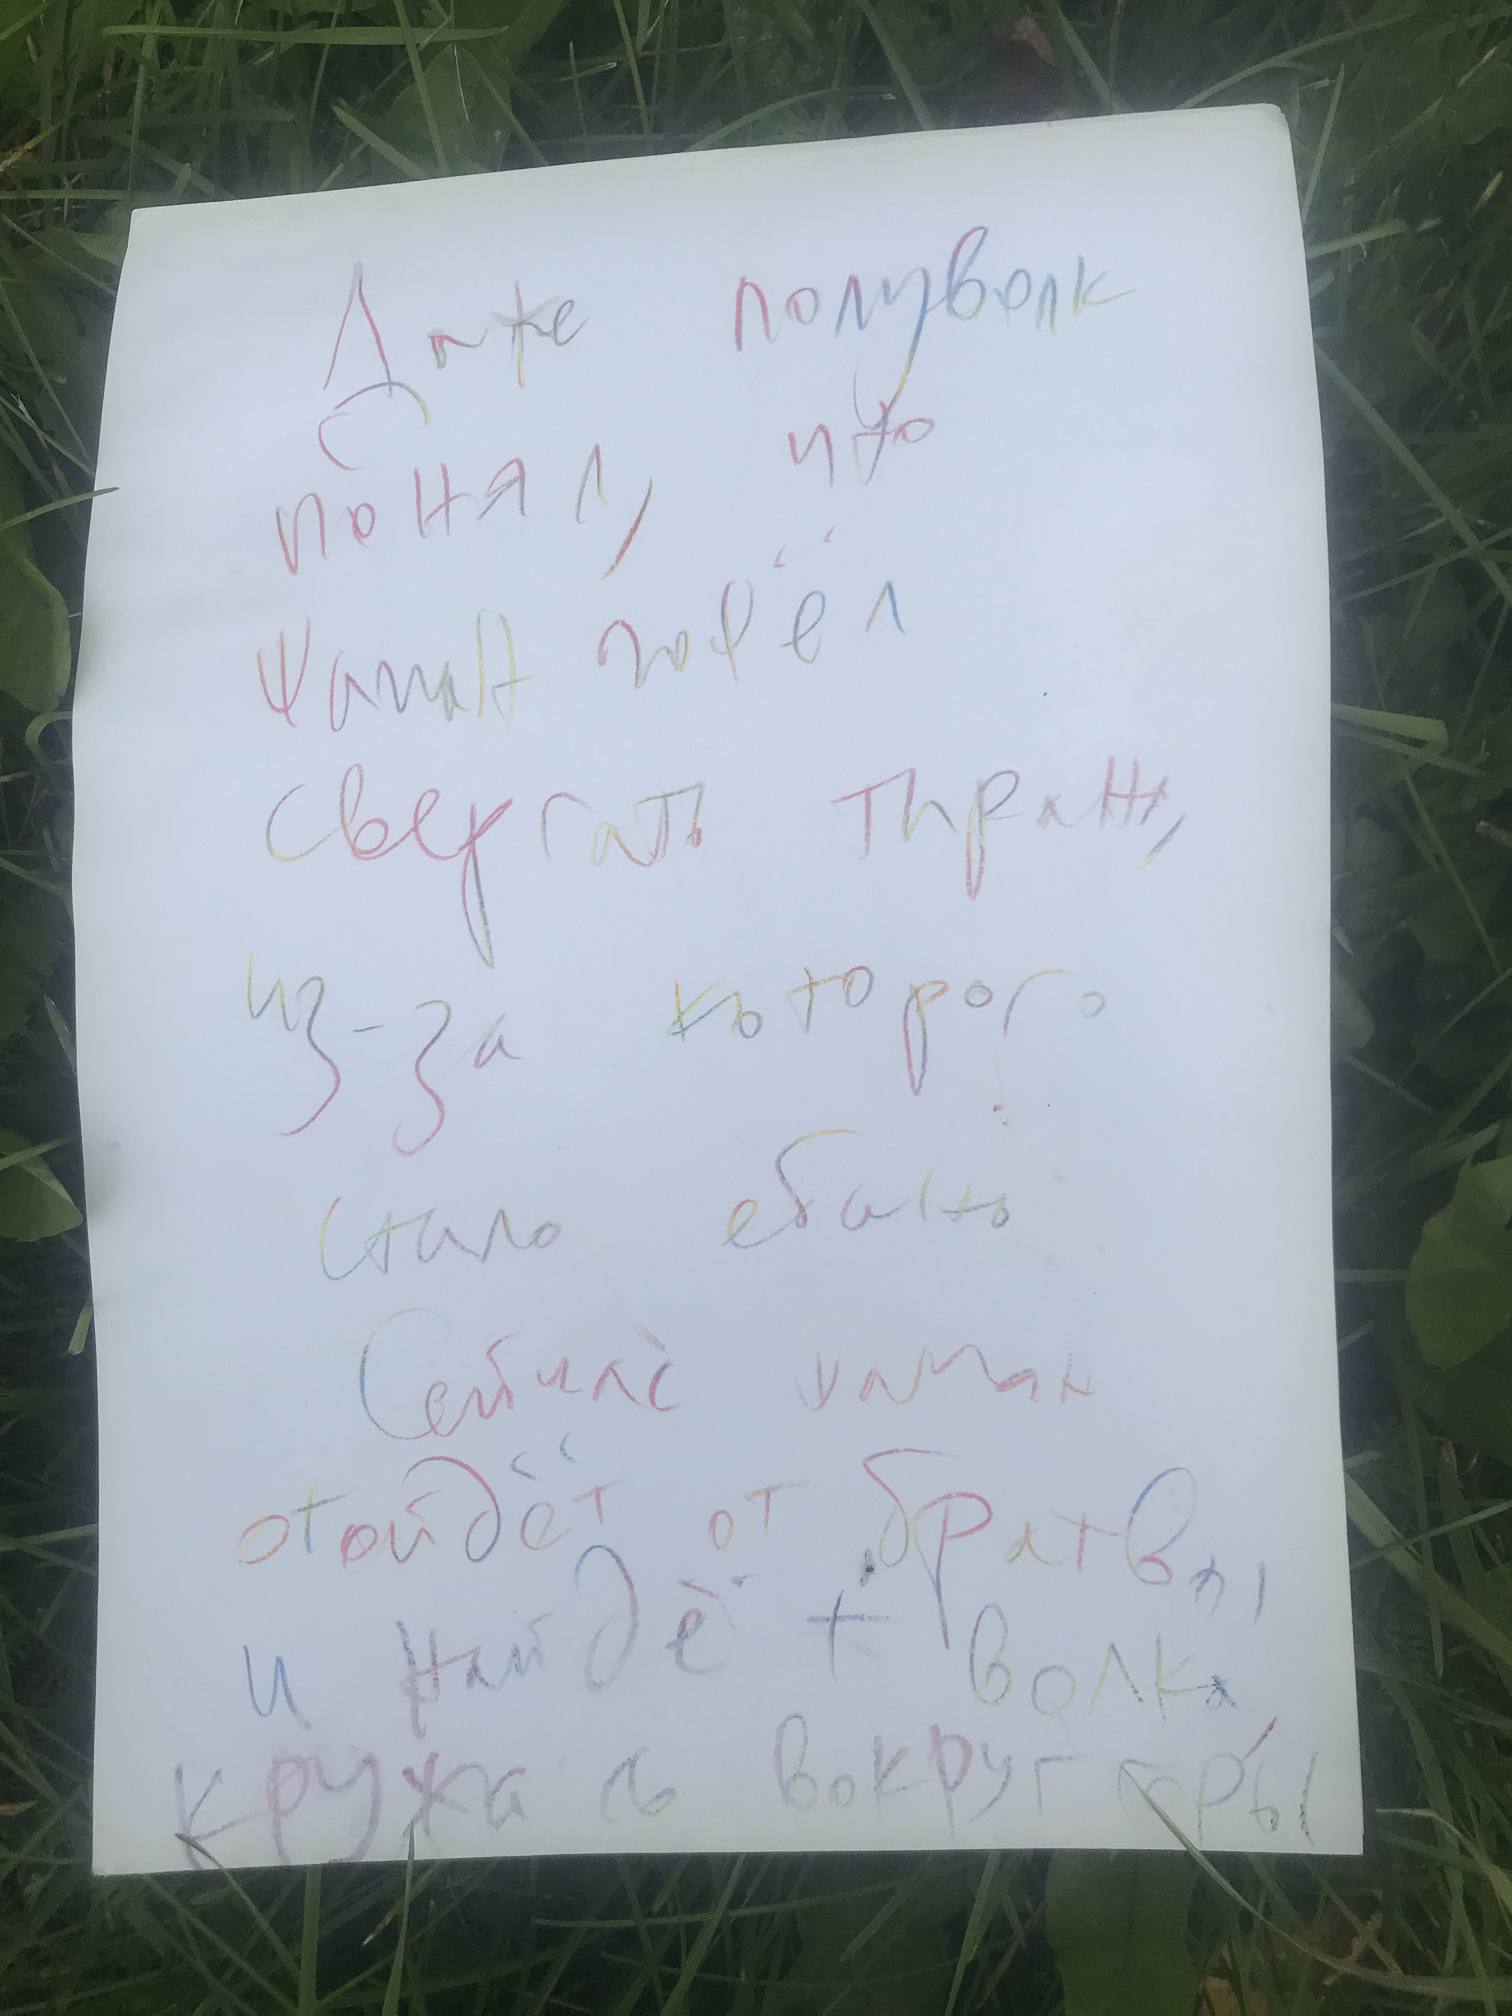 Даже полуволк
понял, что
шаман пошёл
свергать тирана,
из-за которого
стало ебано
Сейчас шаман
отойдёт от братвы,
и найдёт волка,
кружась вокруг горы